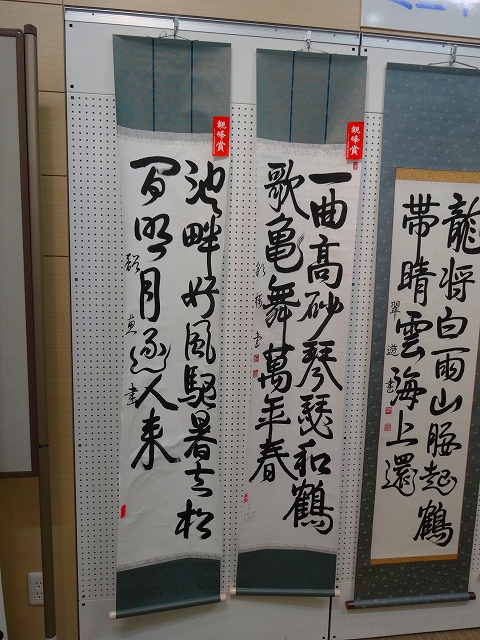 龍将白雨山腰起鶴
帯晴雲海上還
翠遊書
観峰賞
一曲高砂琴瑟和鶴
歌亀舞萬年春
観峰賞
池畔好風駆暑去松
間明月逐人来